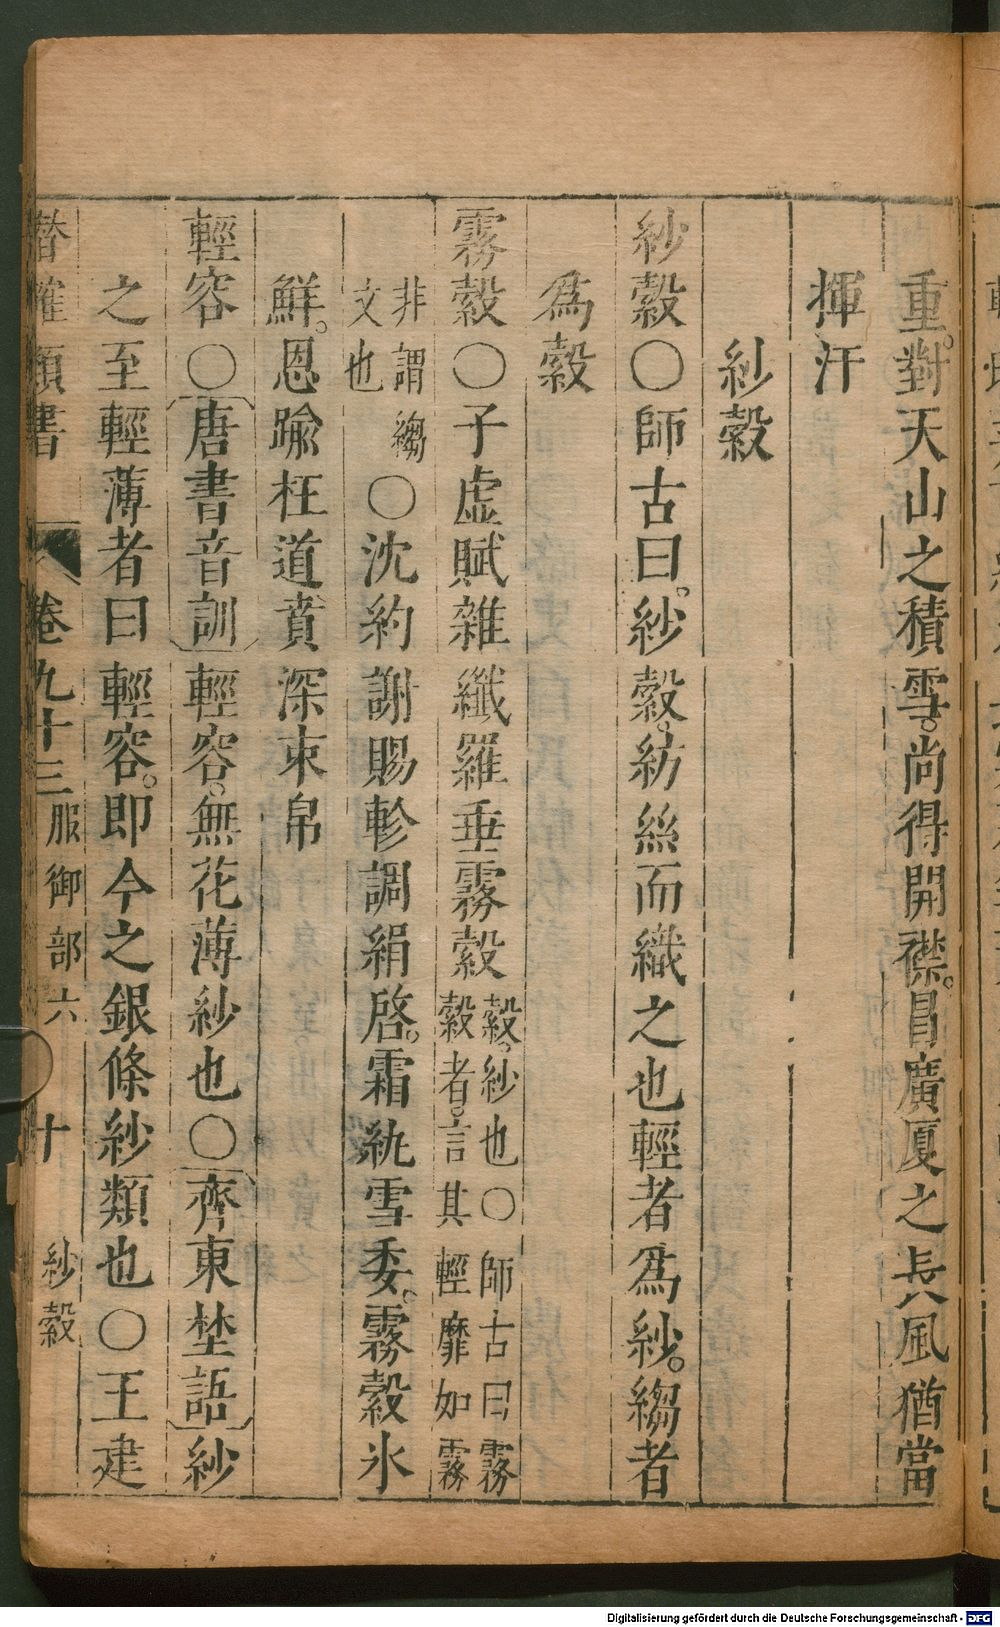 重。對天山之積雪。尚得開襟。昌廣厦之長風猶當
揮汗
紗縠
紗縠〇師古曰。紗縠。紡絲而織之也輕者爲紗。縐者
爲縠
霧縠〇子虛賦雜纖羅垂霧縠縠。紗也〇師古曰霧縠者。言其輕靡如霧
非謂縐文也〇沈約謝賜軫調絹啓。霜紈雪委。霧縠氷
鮮。恩踰枉道賁深束帛
輕容〇唐書音訓輕容。無花薄紗也〇齊東埜語紗
之至輕薄者曰輕容。即今之銀條紗類也〇王建
潛確類書 卷九十三 服御部六 十 紗縠
Digitalisierung gefördert durch die Deutsche Forschungsgemeinschaft - DFG